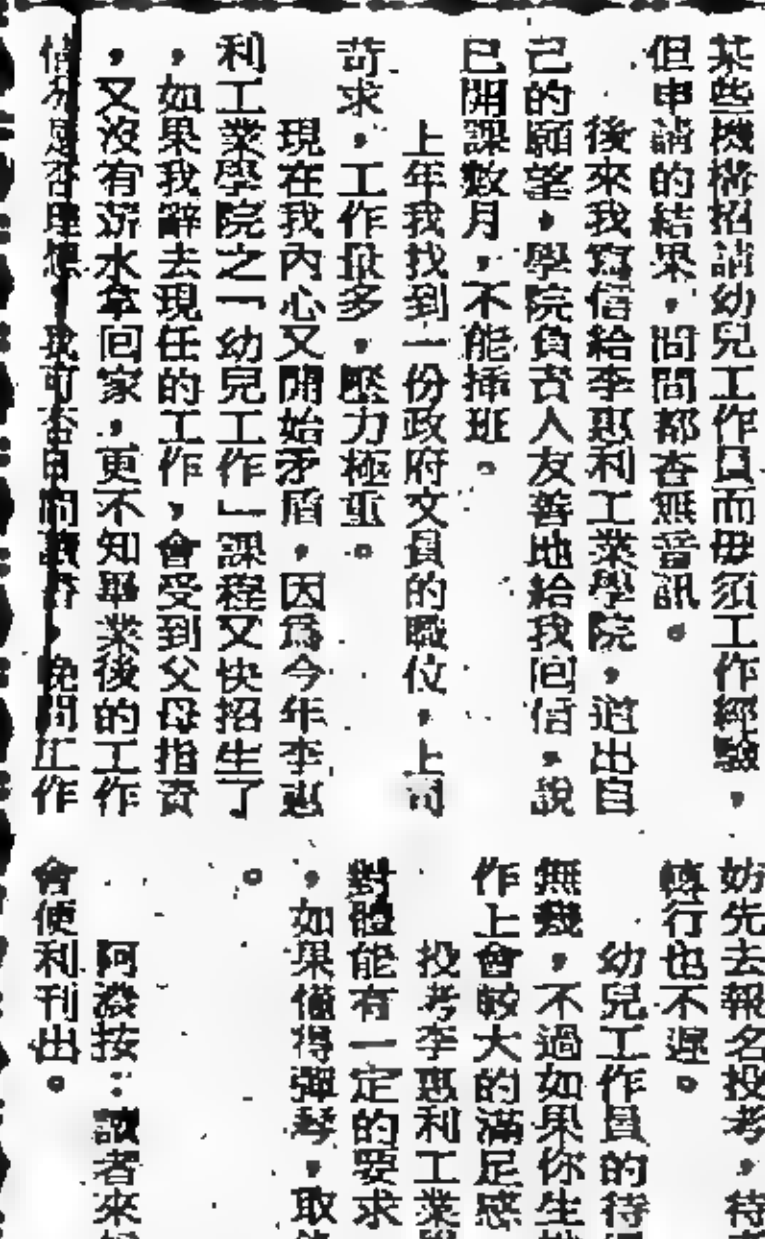 某些機構招請幼兒工作員而毋須工作經驗，
但申請的結果，間間都杳無音訊。
後來我寫信給李惠利工業學院，道出自
己的願望，學院負責人友善地給我回信，說
已開課數月，不能插班。
上年我找到一份政府文員的職位，上司
苛求，工作量多，壓力極重。
現在我內心又開始矛盾，因爲今年李惠
利工業學院之「幼兒工作」課程又快招生了
，如果我辭去現任的工作，會受到父母指責
，又沒有薪水拿回家，更不知畢業後的工作
是否理想，我可否日間讀書，晚間工作
妨先去報名投考，待
轉行也不遲。
幼兒工作員的待
無幾，不過如果你生
作上會較大的滿足感
投考李惠利工業
對體能有一定的要求
，如果僅得彈琴，取
。
阿濃按：讀者來
會便利刊出。